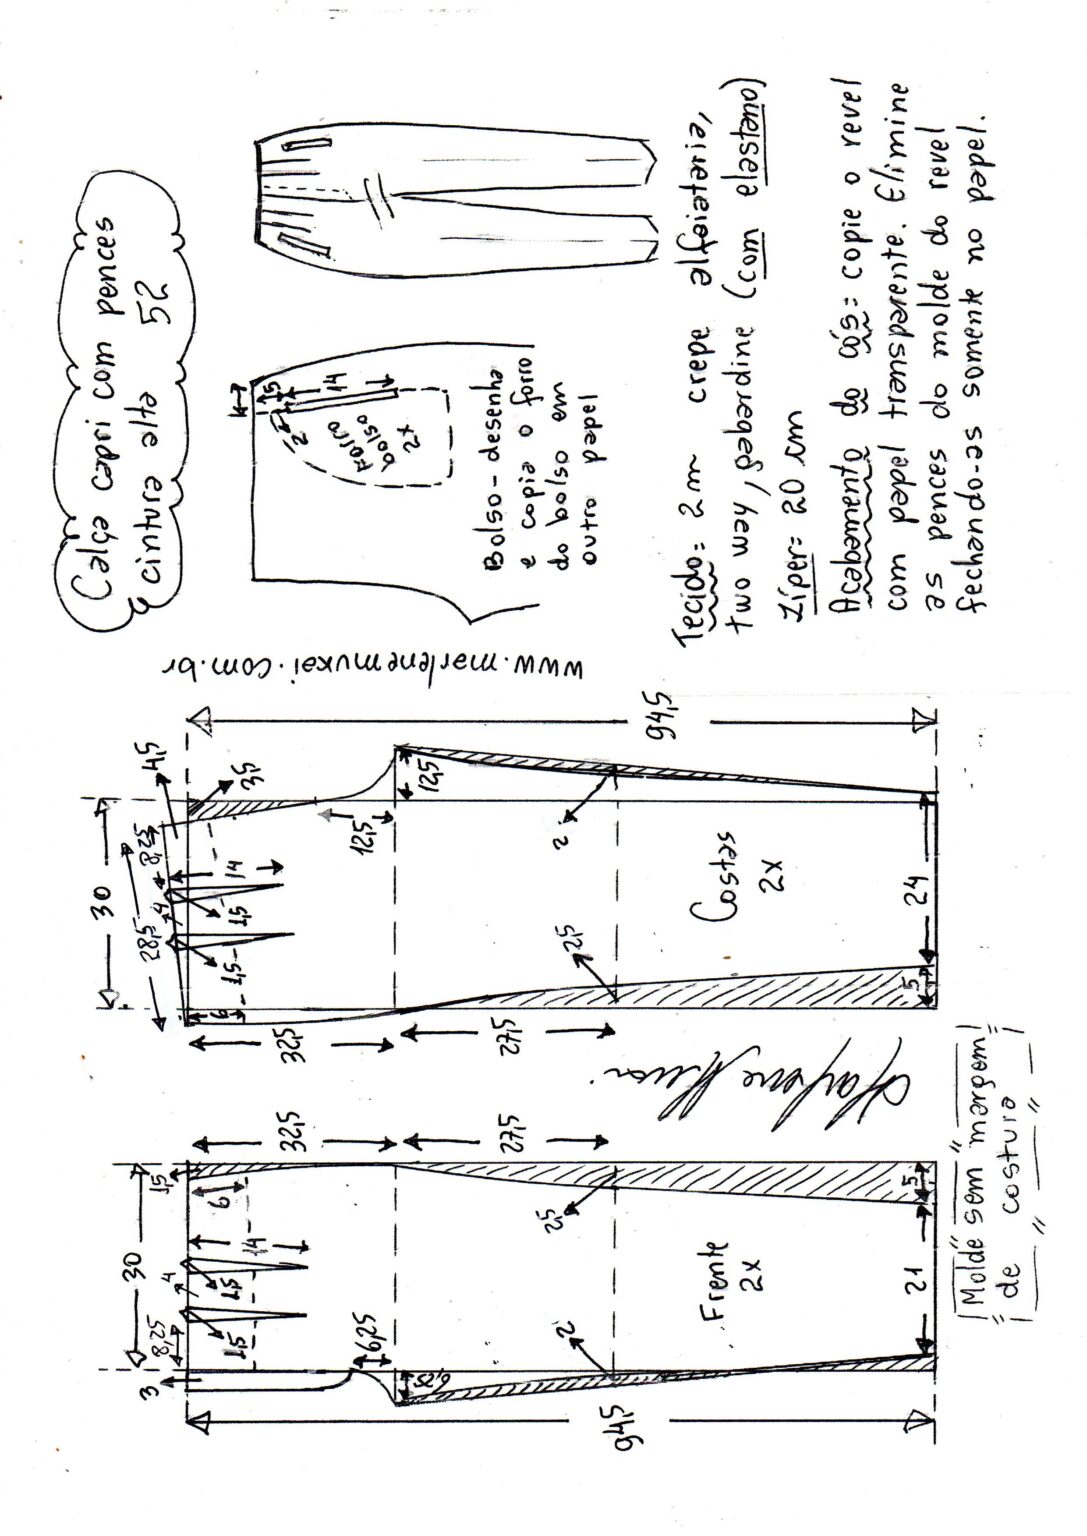 Calça capri com pences
cintura alta 52
5
14
2
Forro
bolso
2x
Bolso- desenha
e copia o forro
do bolso em
outro papel
Tecido= 2m crepe alfaiataria,
two way, gabardine (com elastano)
Zíper= 20 cm
Acabamento do cós= copie o revel
com papel transparente. Elimine
as pences do molde do revel
fechando-as somente no papel.
www.marlenemukai.com.br
30
28,5
8,25
4,5
3,5
4
14
1,5
1,5
6
12,5
12,5
32,5
27,5
2
2,5
Costas
2x
24
5
94,5
Marlene Mukai
30
8,25
3
4
1,5
6
14
1,5
1,5
6,25
6,25
32,5
27,5
2
2,5
Frente
2x
21
5
94,5
Molde sem margem
de costura